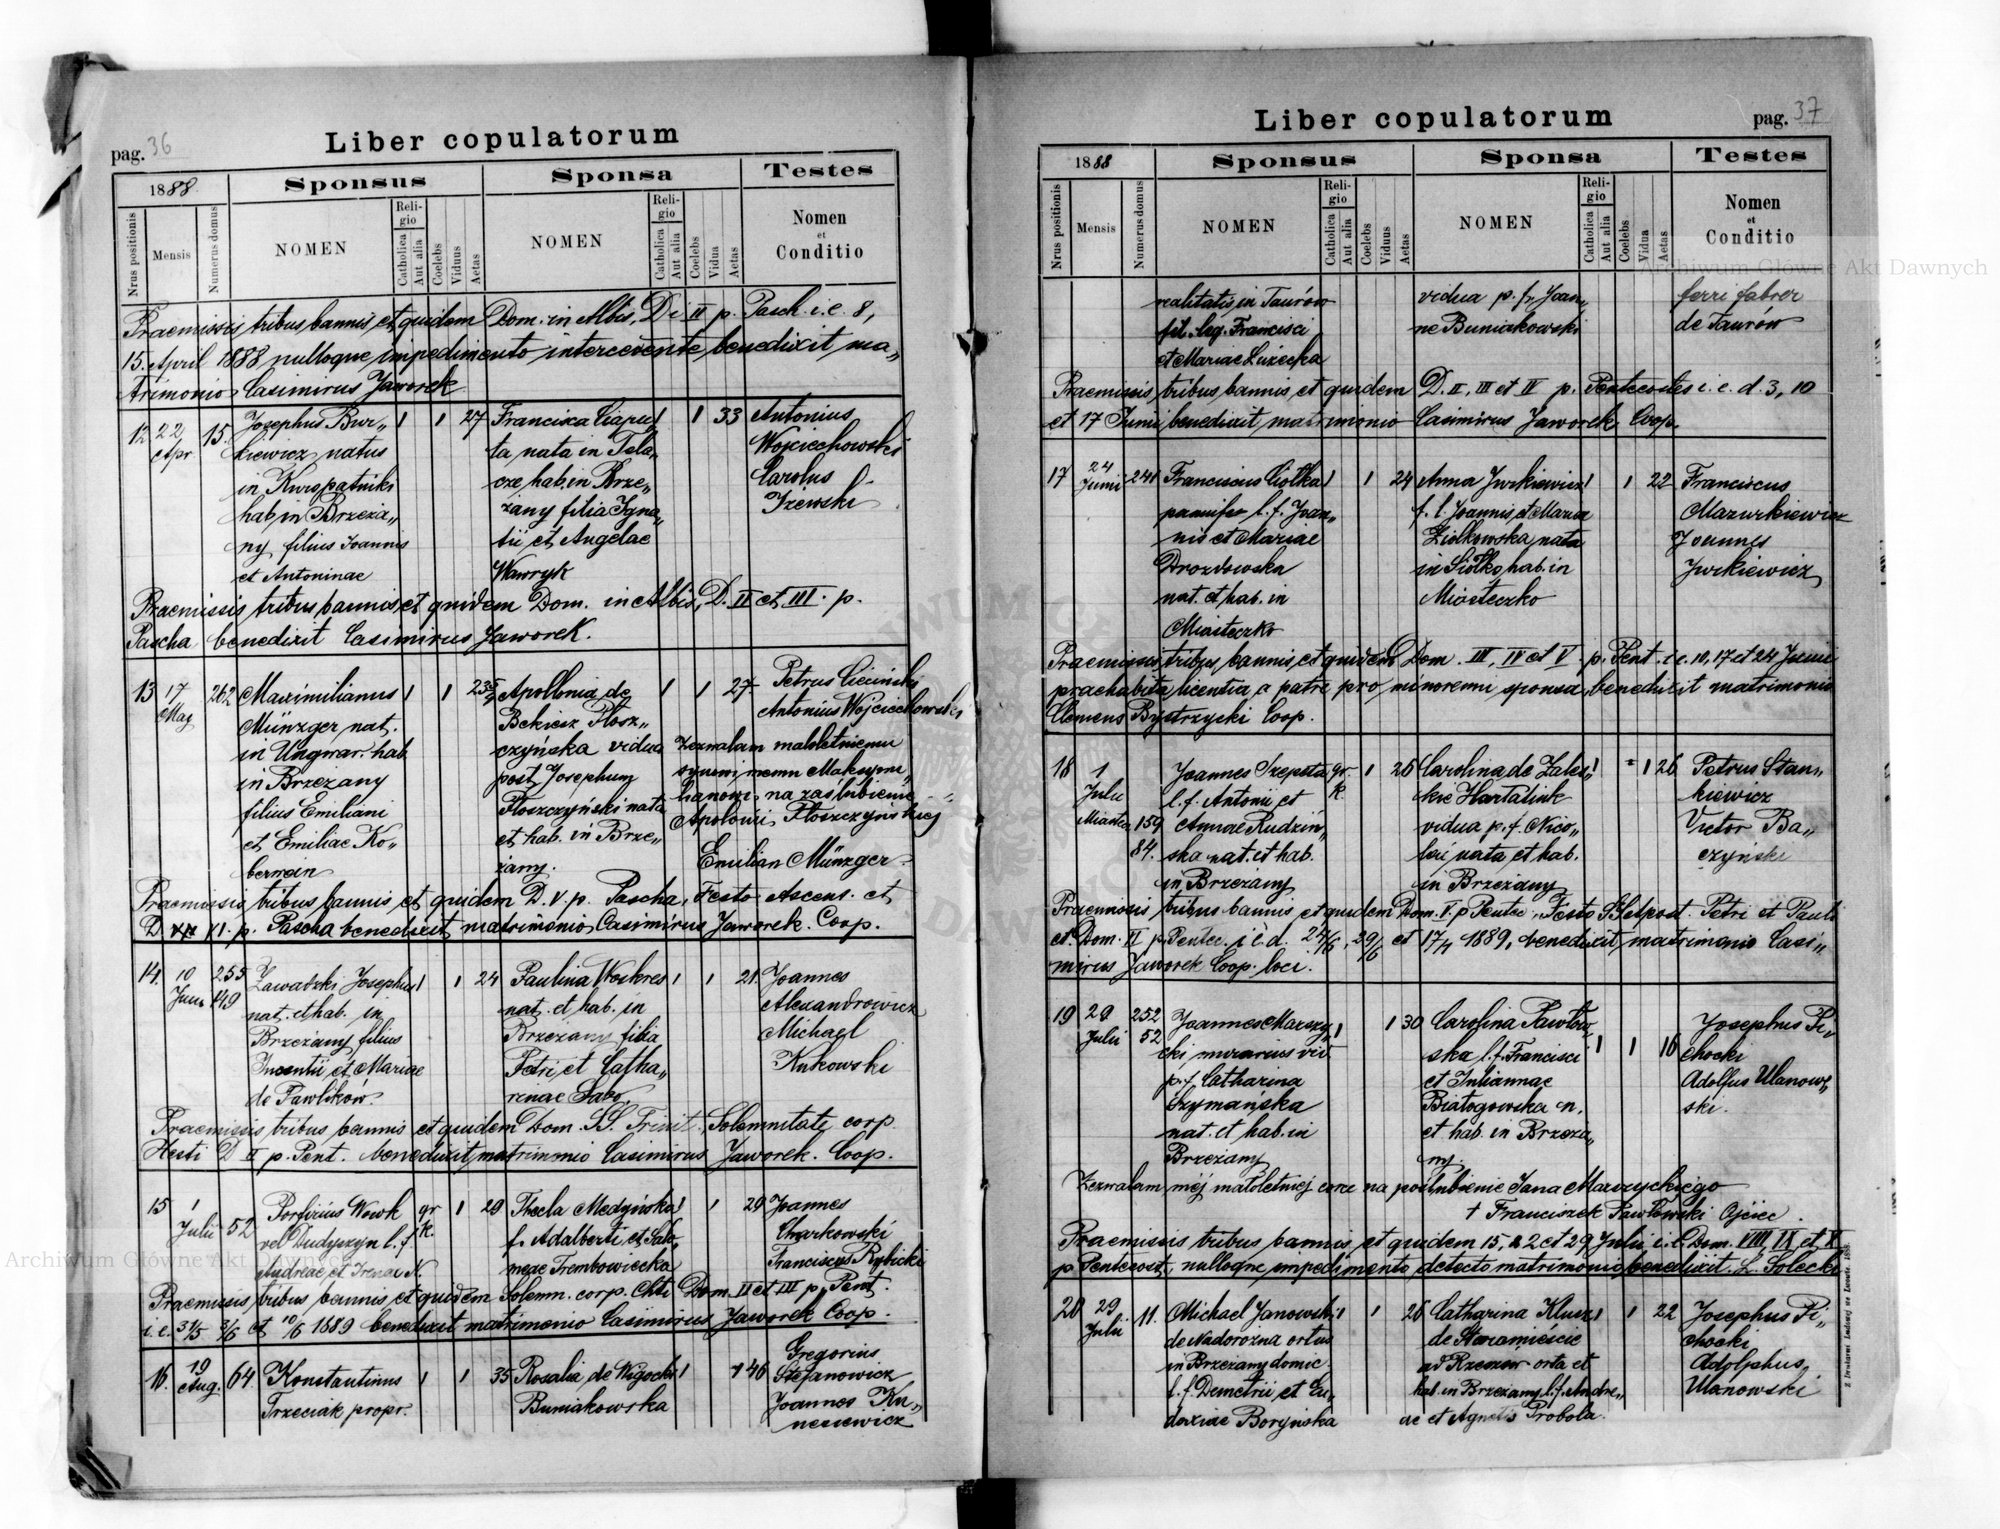 Liber copulatorum
pag. 36
1888.
Sponsus
Sponsa
Testes
Nrus positionis
Mensis
Numerus domus
NOMEN
Religio
Catholica
Aut alia
Coelebs
Viduus
Aetas
NOMEN
Religio
Catholica
Aut alia
Coelebs
Vidua
Aetas
Nomen
et
Conditio
Praemissis tribus bannis et quidem Dom. in Albis, D i II p. Pasch. i. e. 8,
15. April 1888 nulloque impedimento intercedente, benedixit ma„
trimonio Casimirus Jaworek
12 22 Apr. 15. Josephus Bur„ 1 1 27 Francisca Ciapu„ 1 1 33 Antonius
kiewicz natus ta nata in Tela„ Wojciechowski
in Kuropatniki cze, hab. in Brze„ Carolus
hab in Brzeża„ żany filia Igna„ Iżewski
ny filius Joannis tii et Angelae
et Antoninae Wawryk
Praemissis tribus bannis, et quidem Dom. in Albis, D. II et III. p.
Pascha benedixit Casimirus Jaworek.
13 17 Maj 262 Maximilianus 1 1 23 Apollonia de 1 1 27 Petrus Cieciński
Münzger nat. Bekiesz Płosz„ Antonius Wojciechowski
in Ungwar. hab czyńska vidua Zezwalam małoletniemu
in Brzezany post Josephum synowi memu Maksymi„
filius Emiliani Płoszczyński nata lianowi na zaślubienie
et Emiliae Ko„ et hab. in Brze„ Apolonii Płoszczyńskiej
berwein żany. Emilian Münzger
Praemissis tribus bannis et quidem D. V. p. Pascha, Festo Ascens. et
D VI. p. Pascha benedixit matrimonio Casimirus Jaworek. Coop.
14. 10 Juni 255 149 Zawadzki Josephus 1 1 24 Paulina Wockres 1 1 21 Joannes
nat. et hab. in nat. et hab. in Alexandrowicz
Brzeżany filius Brzeżany filia Michael
Incentii et Mariae Petri et Catha„ Kukowski
de Pawlików. rinae Sabo
Praemissis tribus bannis et quidem Dom. SS. Trinit., Solemnitate corp.
Hesti D II p. Pent. benedixit matrimonio Casimirus Jaworek. Coop.
15 1 Julii 52 Porfirius Wowk gr. k. 1 29 Thecla Medyńska 1 1 29 Joannes
vel Dudyszyn l. f. f. Adalberti et Salo„ Charkowski
Andreae et Irenae N. meae Trembowiecka Franciscus Rybicki
Praemissis tribus bannis et quidem Solemn. corp. Chti Dom. II et III p. Pent.
i. e. 31/5 3/6 et 10/6 1889 benedixit matrimonio Casimirus Jaworek Coop.
16. 19 Aug. 64. Konstantinus 1 1 35 Rosalia de Wigocki 1 1 46 Gregorius
Trzeciak propr. Buniakowska Stefanowicz
Joannes Ku„
nesiewicz
Liber copulatorum
pag. 37
1888
Sponsus
Sponsa
Testes
Nrus positionis
Mensis
Numerus domus
NOMEN
Religio
Catholica
Aut alia
Coelebs
Viduus
Aetas
NOMEN
Religio
Catholica
Aut alia
Coelebs
Vidua
Aetas
Nomen
et
Conditio
realitatis, in Taurów vidua p. f. Joan„ ferri faber
fil. leg. Francisci ne Buniakowski de Taurów
et Mariae Łużecka
Praemissis, tribus bannis, et quidem D. II, III et IV p. Pentecostes i. e. d. 3, 10
et 17 Junii benedixit matrimonio Casimirus Jaworek Coop.
17 24 Junii 241 Franciscus Ciołka 1 1 24 Anna Jurkiewicz 1 1 22 Franciscus
panifex l. f. Joan„ f. l. Joannis et Mariae Mazurkiewicz
nis et Mariae Ziolkowska nata Joannes
Drozdowska in Siołko, hab. in Jurkiewicz
nat. et hab. in Miasteczko
Miasteczko
Praemissis tribus bannis, et quidem Dom. III, IV et V p. Pent. i. e. 10, 17 et 24 Junii
praehabita licentia a patre pro minorenni sponsa, benedixit matrimonio
Clemens Bystrzyski Coop.
18 1 Julii Joannes Szepeta gr. k. 1 26 Carolina de Zales„ 1 1 26 Petrus Stan„
l. f. Antonii et kie Hartalink kiewicz
Miastecz 159 Annae Rudzin„ vidua p. f. Nico„ Victor Ba„
84. ska nat. et hab. lai nata et hab. czyński
in Brzeżany in Brzeżany
Praemissis tribus bannis, et quidem Dom. V. p Pentec., Festo SS Apost. Petri et Pauli
et Dom. VI p. Pentec. i e d. 24/6, 29/6 et 1/7 1889, benedixit matrimonio Casi„
mirus Jaworek Coop. loci.
19 29 Julii 252 52 Joannes Marszy„ 1 1 30 Carolina Pawłow„ Josephus Pi„
cki murarius vid. ska l. f. Francisci 1 1 16 chocki
p. f. Catharina et Juliannae Adolfus Ulanow„
Szymańska Białogowska n. ski.
nat. et hab. in et hab. in Brzeża„
Brzeżany ny.
Zezwalam mej małoletniej córce na poślubienie Jana Marszyckiego
† Franciszek Pawłowski Ojciec.
Praemissis tribus bannis, et quidem 15, 22 et 29 Julii i. e. Dom. VIII IX et X
p. Pentecost, nulloque impedimento detecto matrimonio benedixit L. Solecki
20 29 Julii 11. Michael Janowski 1 1 26 Catharina Klusz 1 1 22 Josephus Pi„
de Nadorożna ortus de Staramieście chocki
in Brzeżany domic. ad Rzeszow orta et Adolphus,
l. f. Demetrii et Eu„ hab. in Brzeżany l. f. Andre„ Ulanowski
doxiae Boryńska ae et Agnetis Probola.
Archiwum Główne Akt Dawnych
Archiwum Główne Akt Dawnych